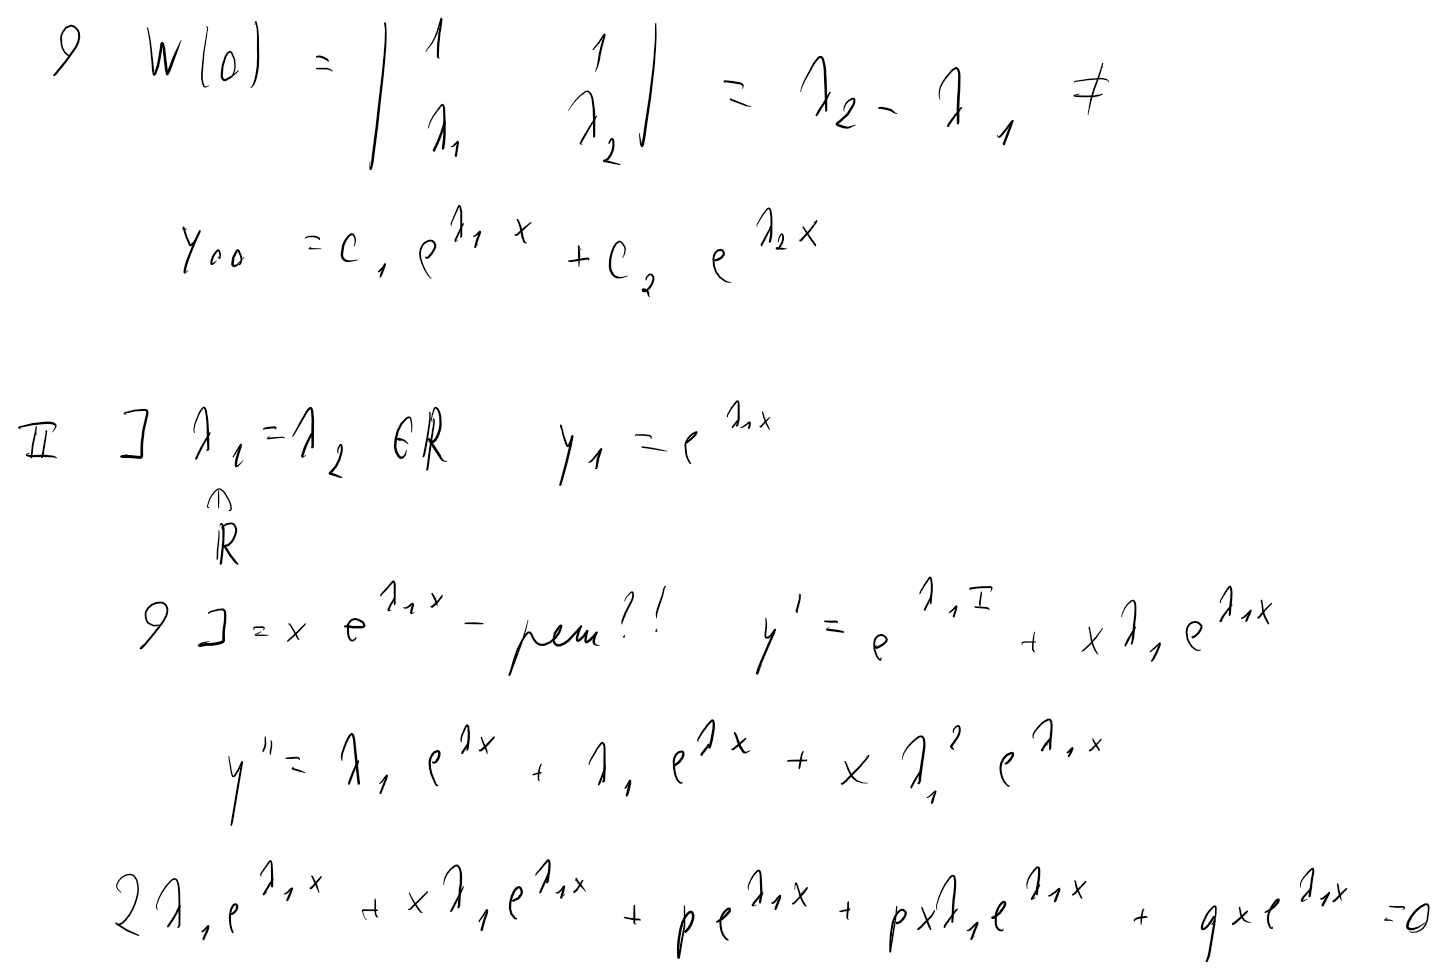 9 W(0) = | 1 1 ; λ₁ λ₂ | = λ₂ - λ₁ ≠
y₀₀ = C₁ e^{λ₁ x} + C₂ e^{λ₂ x}
II ] λ₁ = λ₂ ∈ ℝ y₁ = e^{λ₁ x}
∩
ℝ
9 ] = x e^{λ₁ x} - реш?! y' = e^{λ₁ I} + x λ₁ e^{λ₁ x}
y'' = λ₁ e^{λx} + λ₁ e^{λx} + x λ₁² e^{λ₁ x}
2λ₁ e^{λ₁ x} + x λ₁ e^{λ₁ x} + p e^{λ₁ x} + p x λ₁ e^{λ₁ x} + q x e^{λ₁ x} = 0